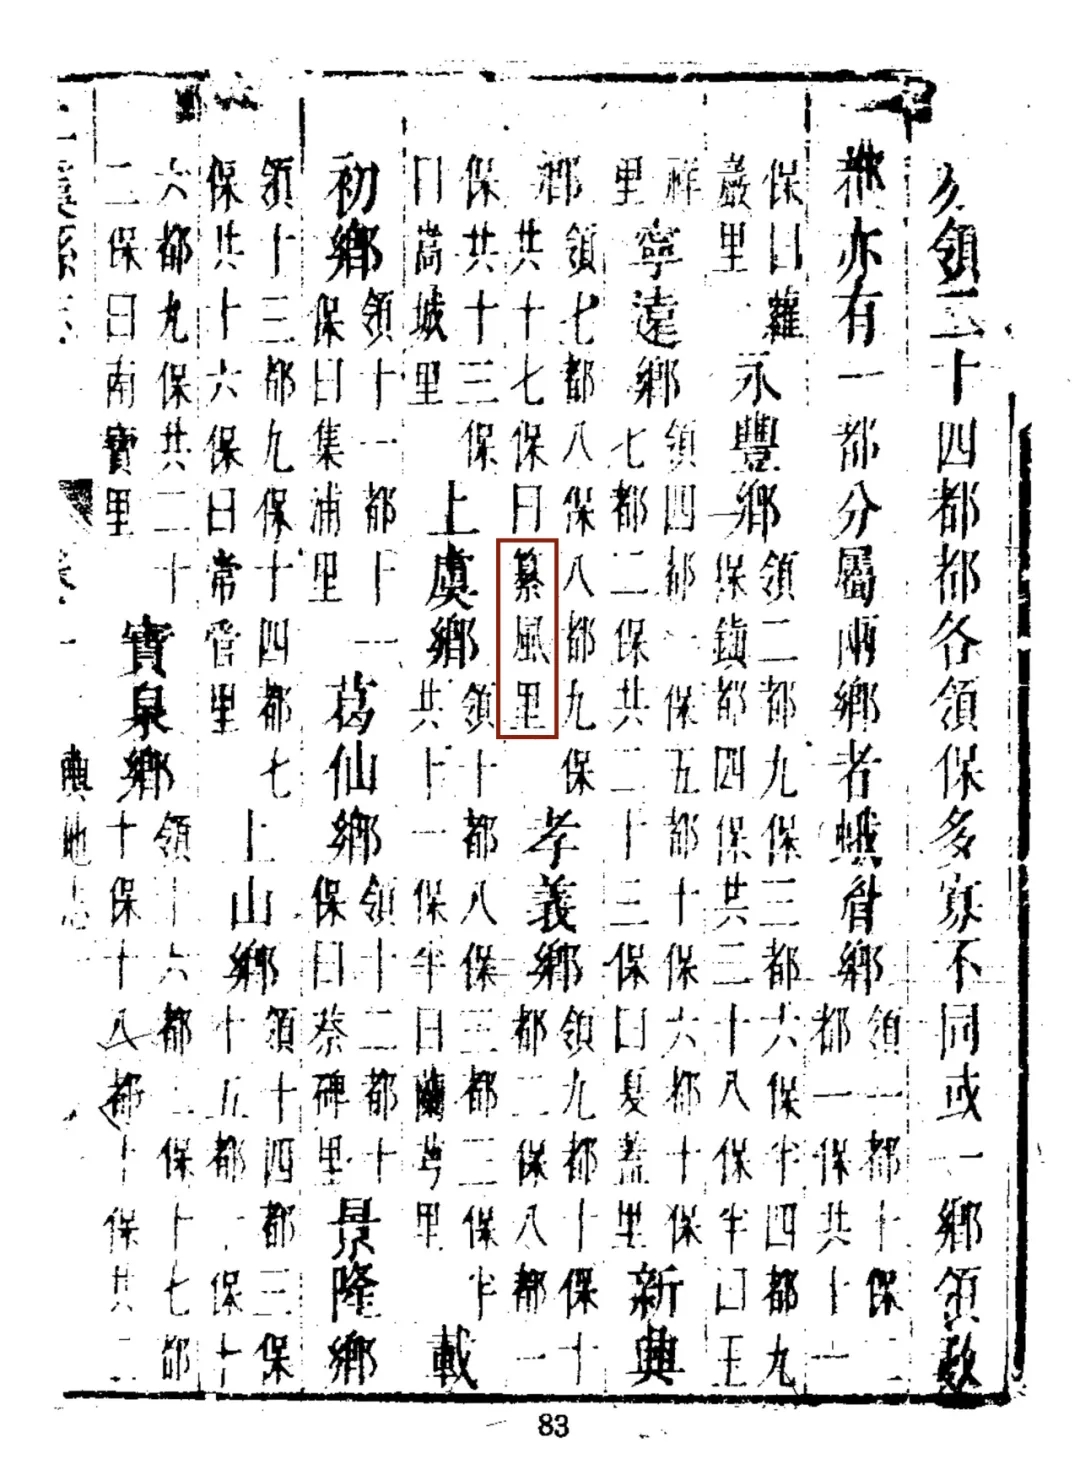 領二十四都都各領保多寡不同或一鄉領數
都亦有一都分屬兩鄉者蛾眉鄉
領一都十保二
都一保共十一
保曰蘿
巖里
永豐鄉
領二都九保三都六保半四都九
保鎮都四保共二十八保半曰王
祥
里
寧遠鄉
領四都一保五都十保六都十保
七都二保共二十三保曰夏蓋里
新興
鄉
領七都八保八都九保
共十七保曰纂風里
孝義鄉
領九都十保十
都二保八都一
保共十三保
曰嵩城里
上虞鄉
領十都八保三都二保半
共十一保半曰蘭芎里
載
初鄉
領十一都十一
保曰集浦里
葛仙鄉
領十二都十
保曰蔡碑里
景隆鄉
領十三都九保十四都七
保共十六保曰常管里
上山鄉
領十四都三保
十五都一保十
六都九保共二十
二保曰南寶里
寶泉鄉
領十六都二保十七都
十保十八都十保共二
上虞縣志
卷一
輿地志
83